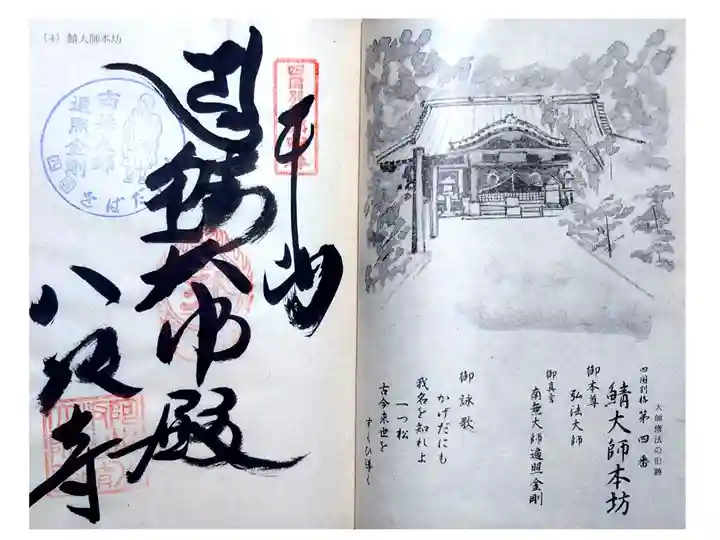 大師修法の旧跡
四国別格 第四番
鯖大師本坊
御本尊
弘法大師
御真言
南無大師遍照金剛
御詠歌
かげだにも
我名を知れよ
一つ松
古今来世を
すくひ導く
(4) 鯖大師本坊
奉拝
鯖大師殿
八坂寺
遍照金剛
さばだ